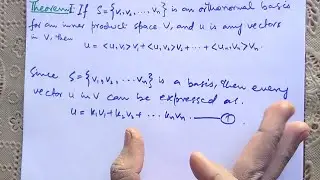 Theorem1: If S = {v₁, v₂, ... vₙ} is an orthonormal basis
for an inner product space V, and u is any vectors
in V, then
u = <u, v₁> v₁ + <u, v₂> v₂ + ... + <uₙ, vₙ> vₙ.
Since S = {v₁, v₂, ... vₙ} is a basis, then every
vector u in V can be expressed as.
u = k₁v₁ + k₂v₂ + ... kₙvₙ. ——①